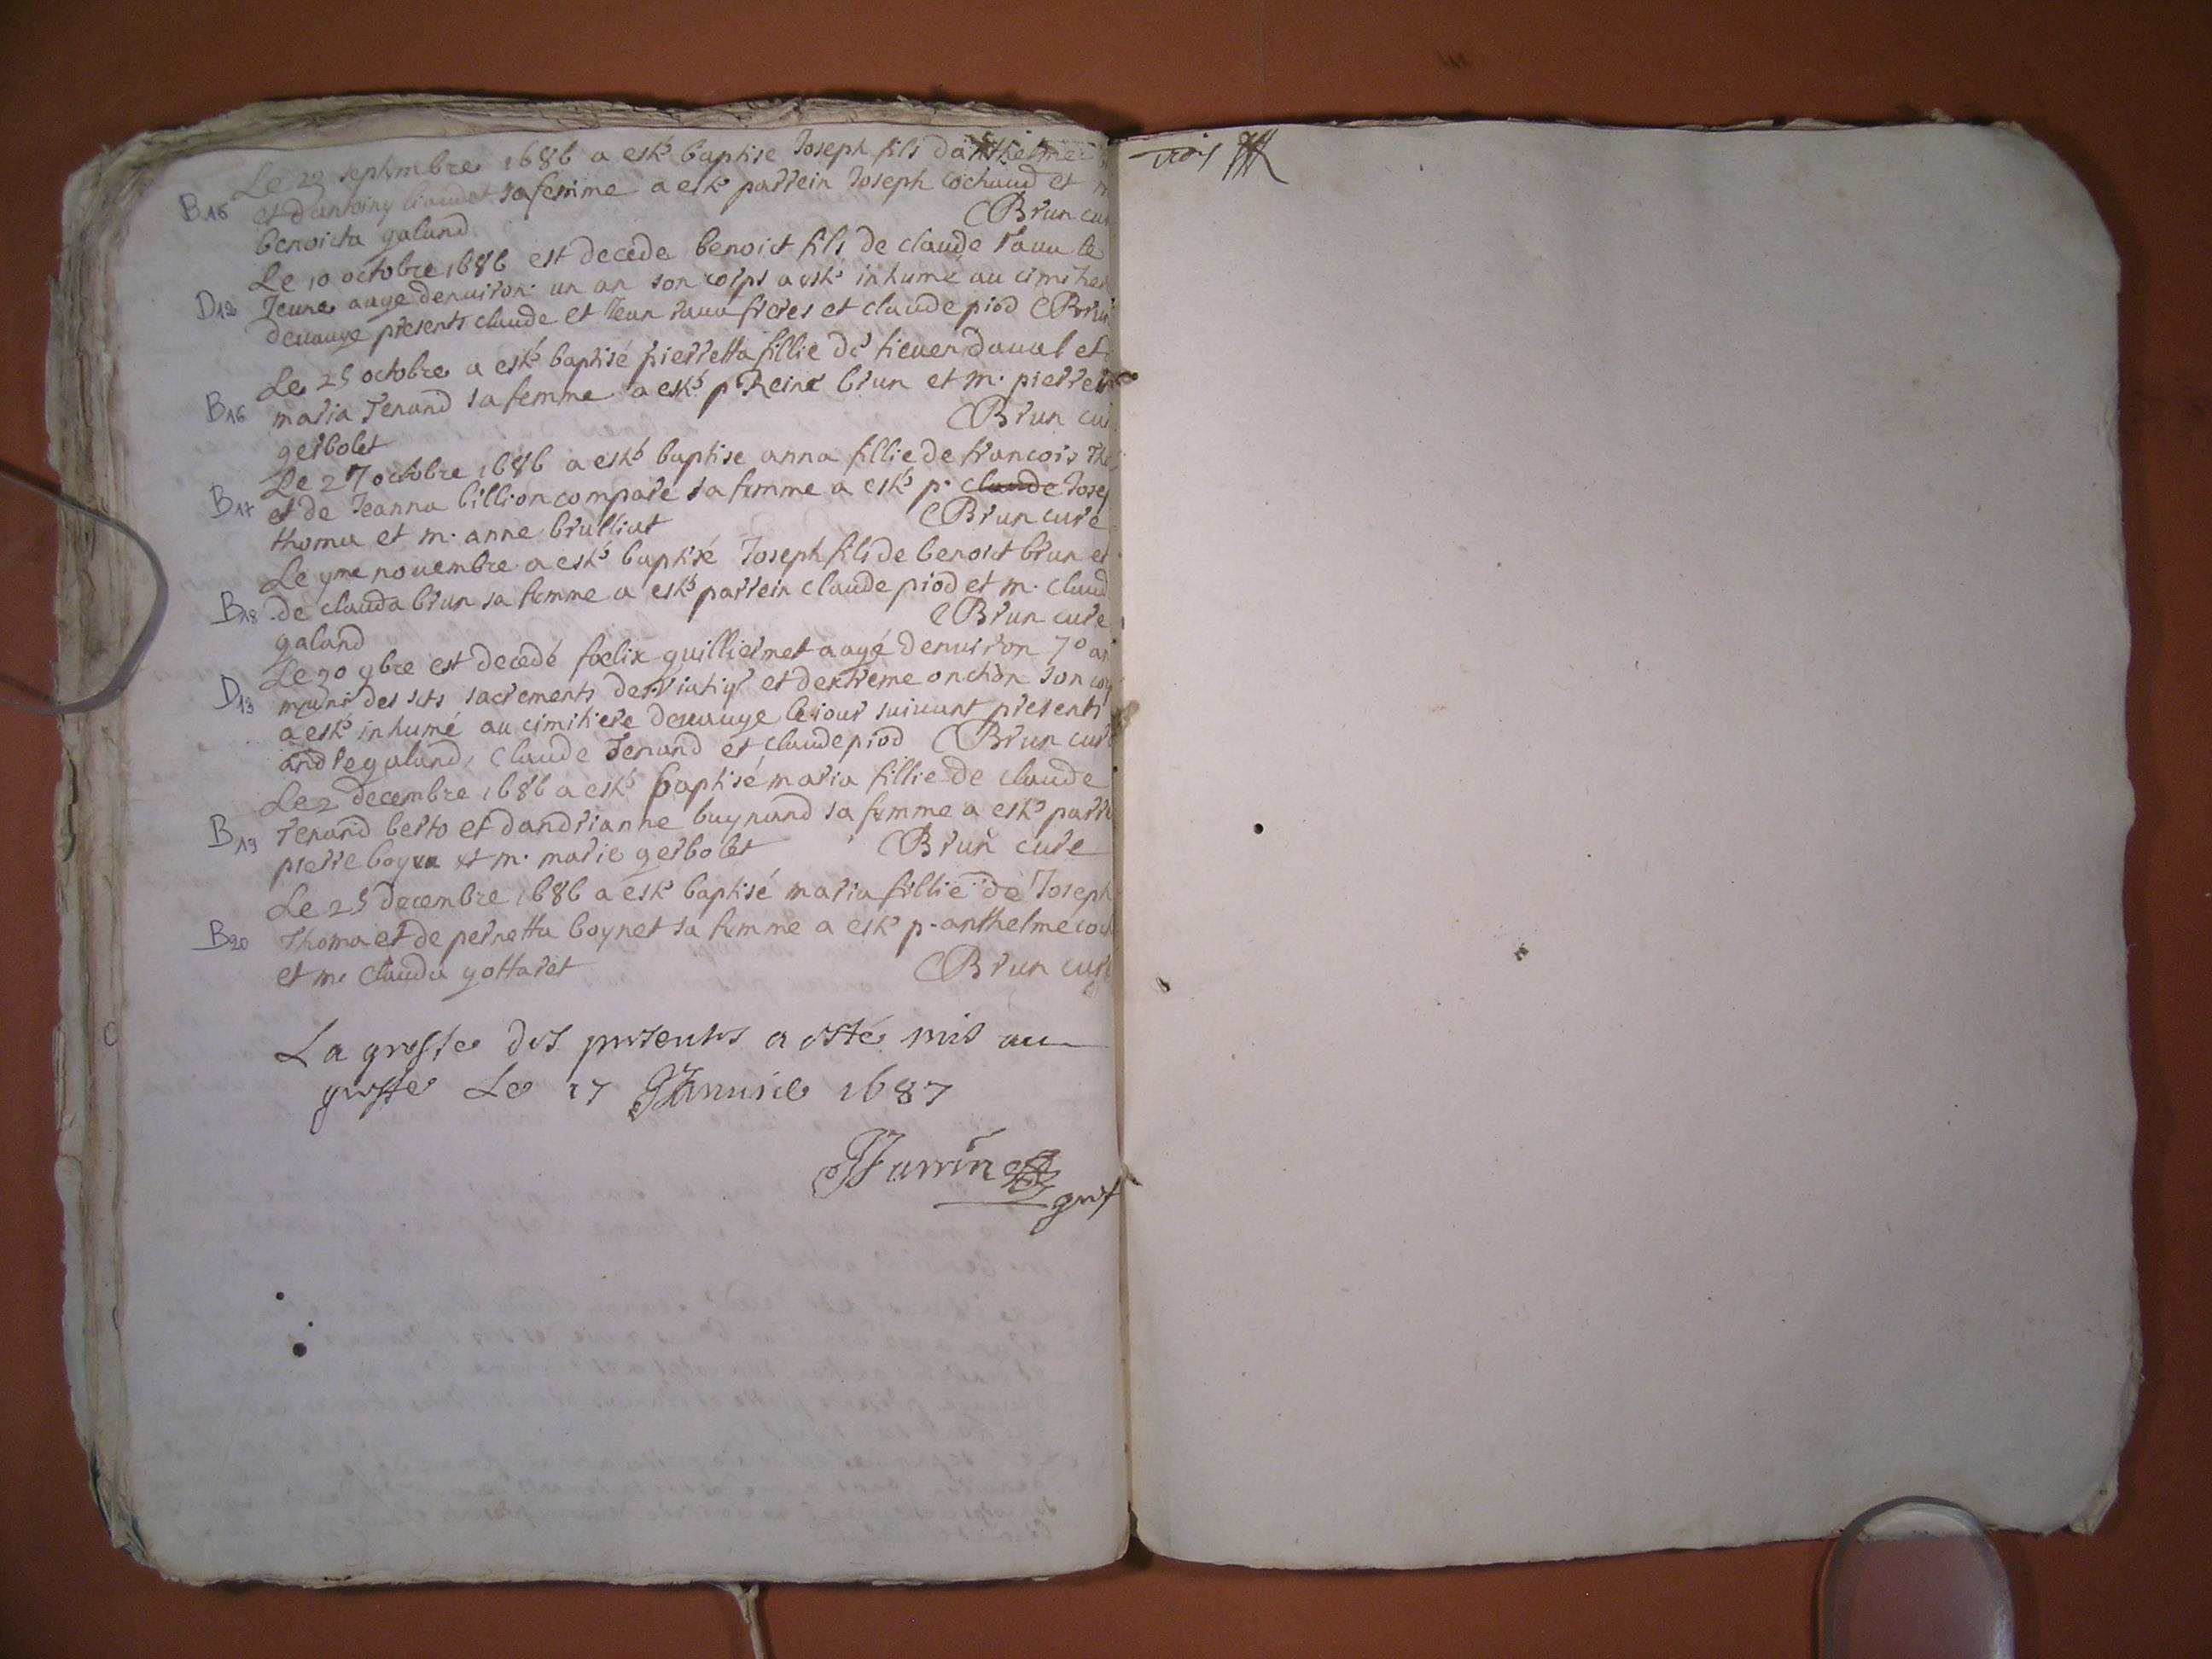 Le 29 septembre 1686 a esté baptise Joseph fils danthelme
B16 et dantoiny liaudet sa femme a esté parrein Joseph cochaud et m
benoicta galand CBrun cur
Le 10 octobre 1686 est decede benoict fils de claude rauu le
D12 Jeune aagé denuiron un an son corps a esté inhumé au cimitier
deuauge presents claude et Jean rauu freres et claude piod CBrun
Le 25 octobre a esté baptisé pierretta fillie de hieuen daual et
B16 maria Ferand sa femme a esté p Reine brun et m. pierret
gerbolet CBrun cur
Le 27 octobre 1686 a esté baptise anna fillie de francois Tho
B17 et de Jeanna billion compare sa femme a esté p. claude Josep
thoma et m. anne brulliat CBrun cure
Le 9me nouembre a esté baptisé Joseph fils de benoict brun et
B18 de clauda brun sa femme a esté parrein claude piod et m. claud
galand CBrun cure
Le 20 9bre est decedé foelix guilliermet aagé denuiron 70 an
D13 muni des sts sacrements de viatiq et dextreme onction son cor
a esté inhumé au cimitiere deuauge le iour suiuant presents
andre galand, Claude Ferand et claude piod CBrun cure
Le 2 decembre 1686 a esté baptisé maria fillie de claude
B19 Ferand berto et dandrianne buynand sa femme a esté parre
pierre et m. marie gerbolet CBrun cure
Le 25 decembre 1686 a esté baptisé maria fillie de Joseph
B20 Thoma et de pernetta boynet sa femme a esté p. anthelme coch
et m. clauda gottaret CBrun cure
La grosse des presentes a esté mis au
greffe Le 17 Januier 1687
gref